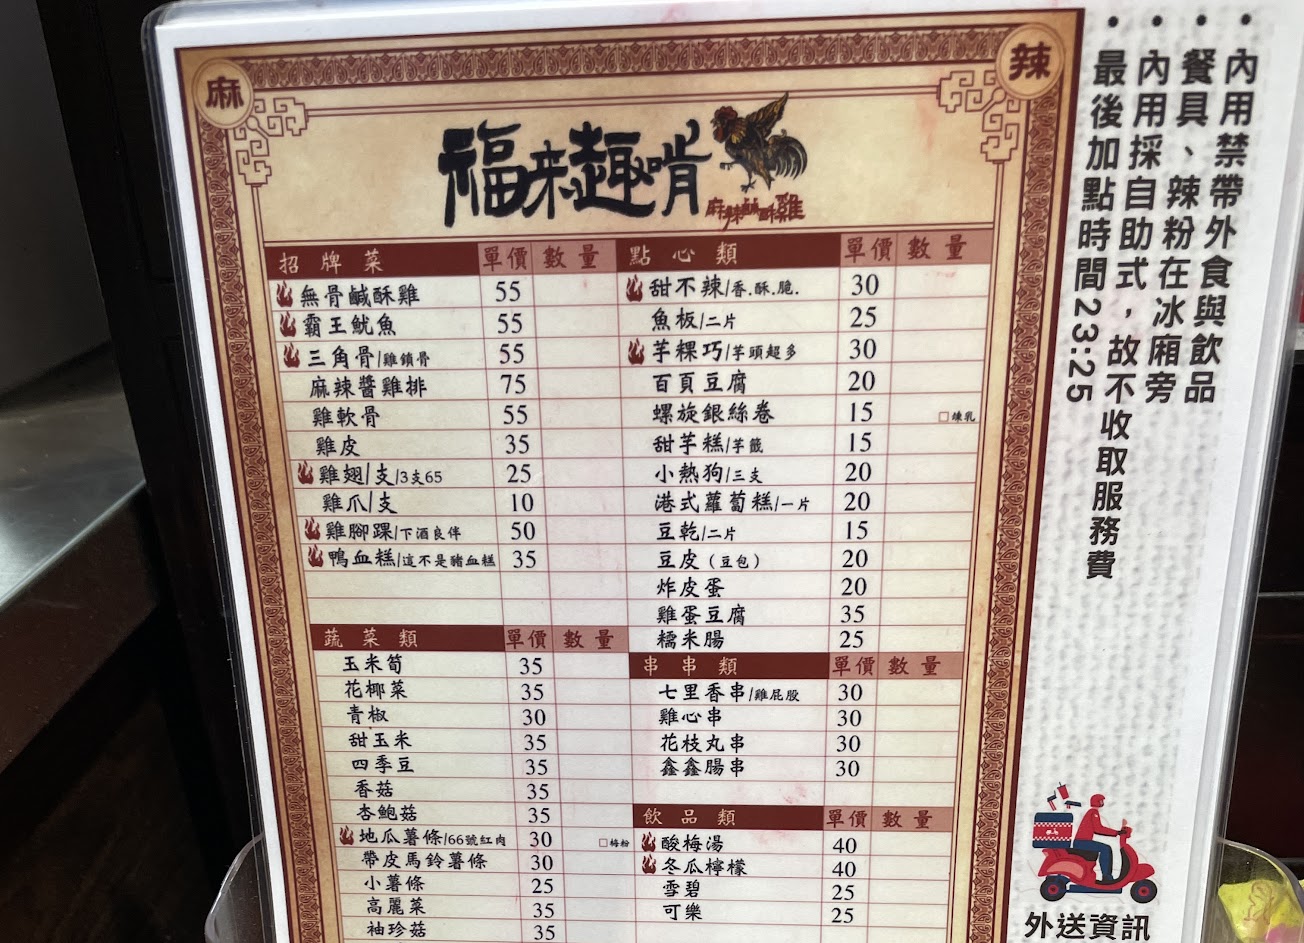 麻
辣
福來趣啃
麻辣鹹酥雞
招牌菜 單價 數量
無骨鹹酥雞 55
霸王魷魚 55
三角骨/雞鎖骨 55
麻辣醬雞排 75
雞軟骨 55
雞皮 35
雞翅/支/3支65 25
雞爪/支 10
雞腳踝/下酒良伴 50
鴨血糕/這不是豬血糕 35
蔬菜類 單價 數量
玉米筍 35
花椰菜 35
青椒 30
甜玉米 35
四季豆 35
香菇 35
杏鮑菇 35
地瓜薯條/66號紅肉 30 □梅粉
帶皮馬鈴薯條 30
小薯條 25
高麗菜 35
袖珍菇 35
點心類 單價 數量
甜不辣/香.酥.脆. 30
魚板/二片 25
芋粿巧/芋頭超多 30
百頁豆腐 20
螺旋銀絲卷 15 □煉乳
甜芋糕/芋籤 15
小熱狗/三支 20
港式蘿蔔糕/一片 20
豆乾/二片 15
豆皮（豆包） 20
炸皮蛋 20
雞蛋豆腐 35
糯米腸 25
串串類 單價 數量
七里香串/雞屁股 30
雞心串 30
花枝丸串 30
鑫鑫腸串 30
飲品類 單價 數量
酸梅湯 40
冬瓜檸檬 40
雪碧 25
可樂 25
•內用禁帶外食與飲品
•餐具、辣粉在冰廂旁
•內用採自助式，故不收取服務費
•最後加點時間23:25
外送資訊